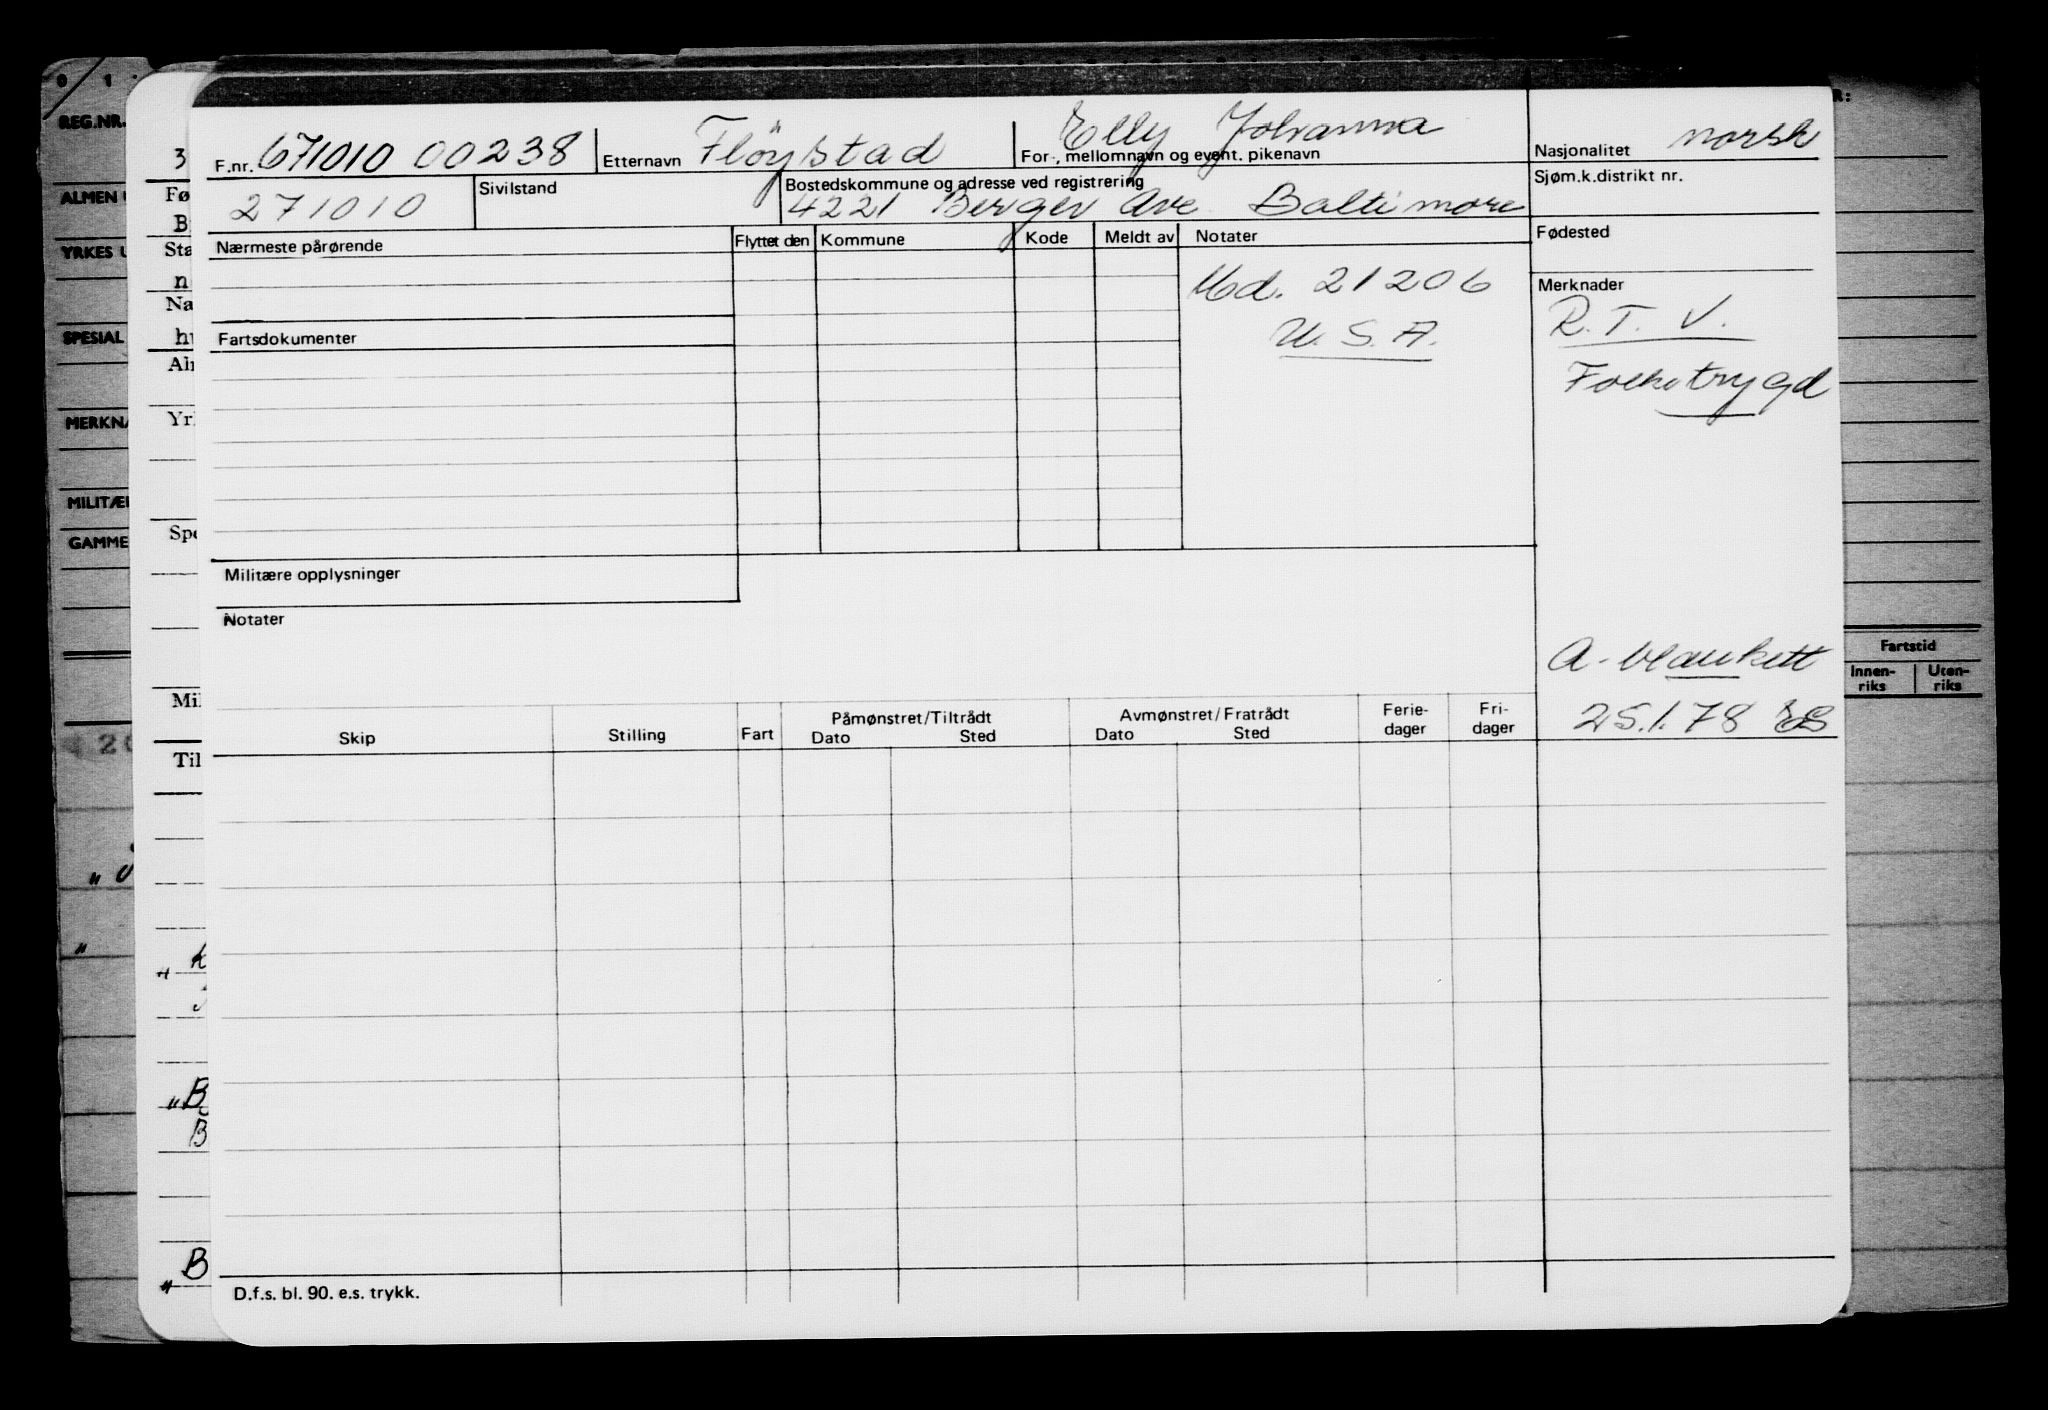 F.nr. 671010 00238 Etternavn Fløystad For-, mellomnavn og event. pikenavn Elly Johanna Nasjonalitet norsk
271010 Sivilstand Bostedskommune og adresse ved registrering 4221 Berger Ave Baltimore Sjøm.k.distrikt nr.
Nærmeste pårørende Flyttet den Kommune Kode Meldt av Notater Fødested
Md. 21206
U. S. A.
Merknader
R. T. V.
Folketrygd
Fartsdokumenter
Militære opplysninger
Notater
A-blankett
25.1.78
Skip Stilling Fart Påmønstret/Tiltrådt Dato Sted Avmønstret/Fratrådt Dato Sted Ferie-dager Fri-dager
D.f.s. bl. 90. e.s. trykk.
REG.NR.
ALMEN
YRKES
SPESIAL
MERKN
MILITÆ
GAMME
Fartstid
Innen-riks Uten-riks